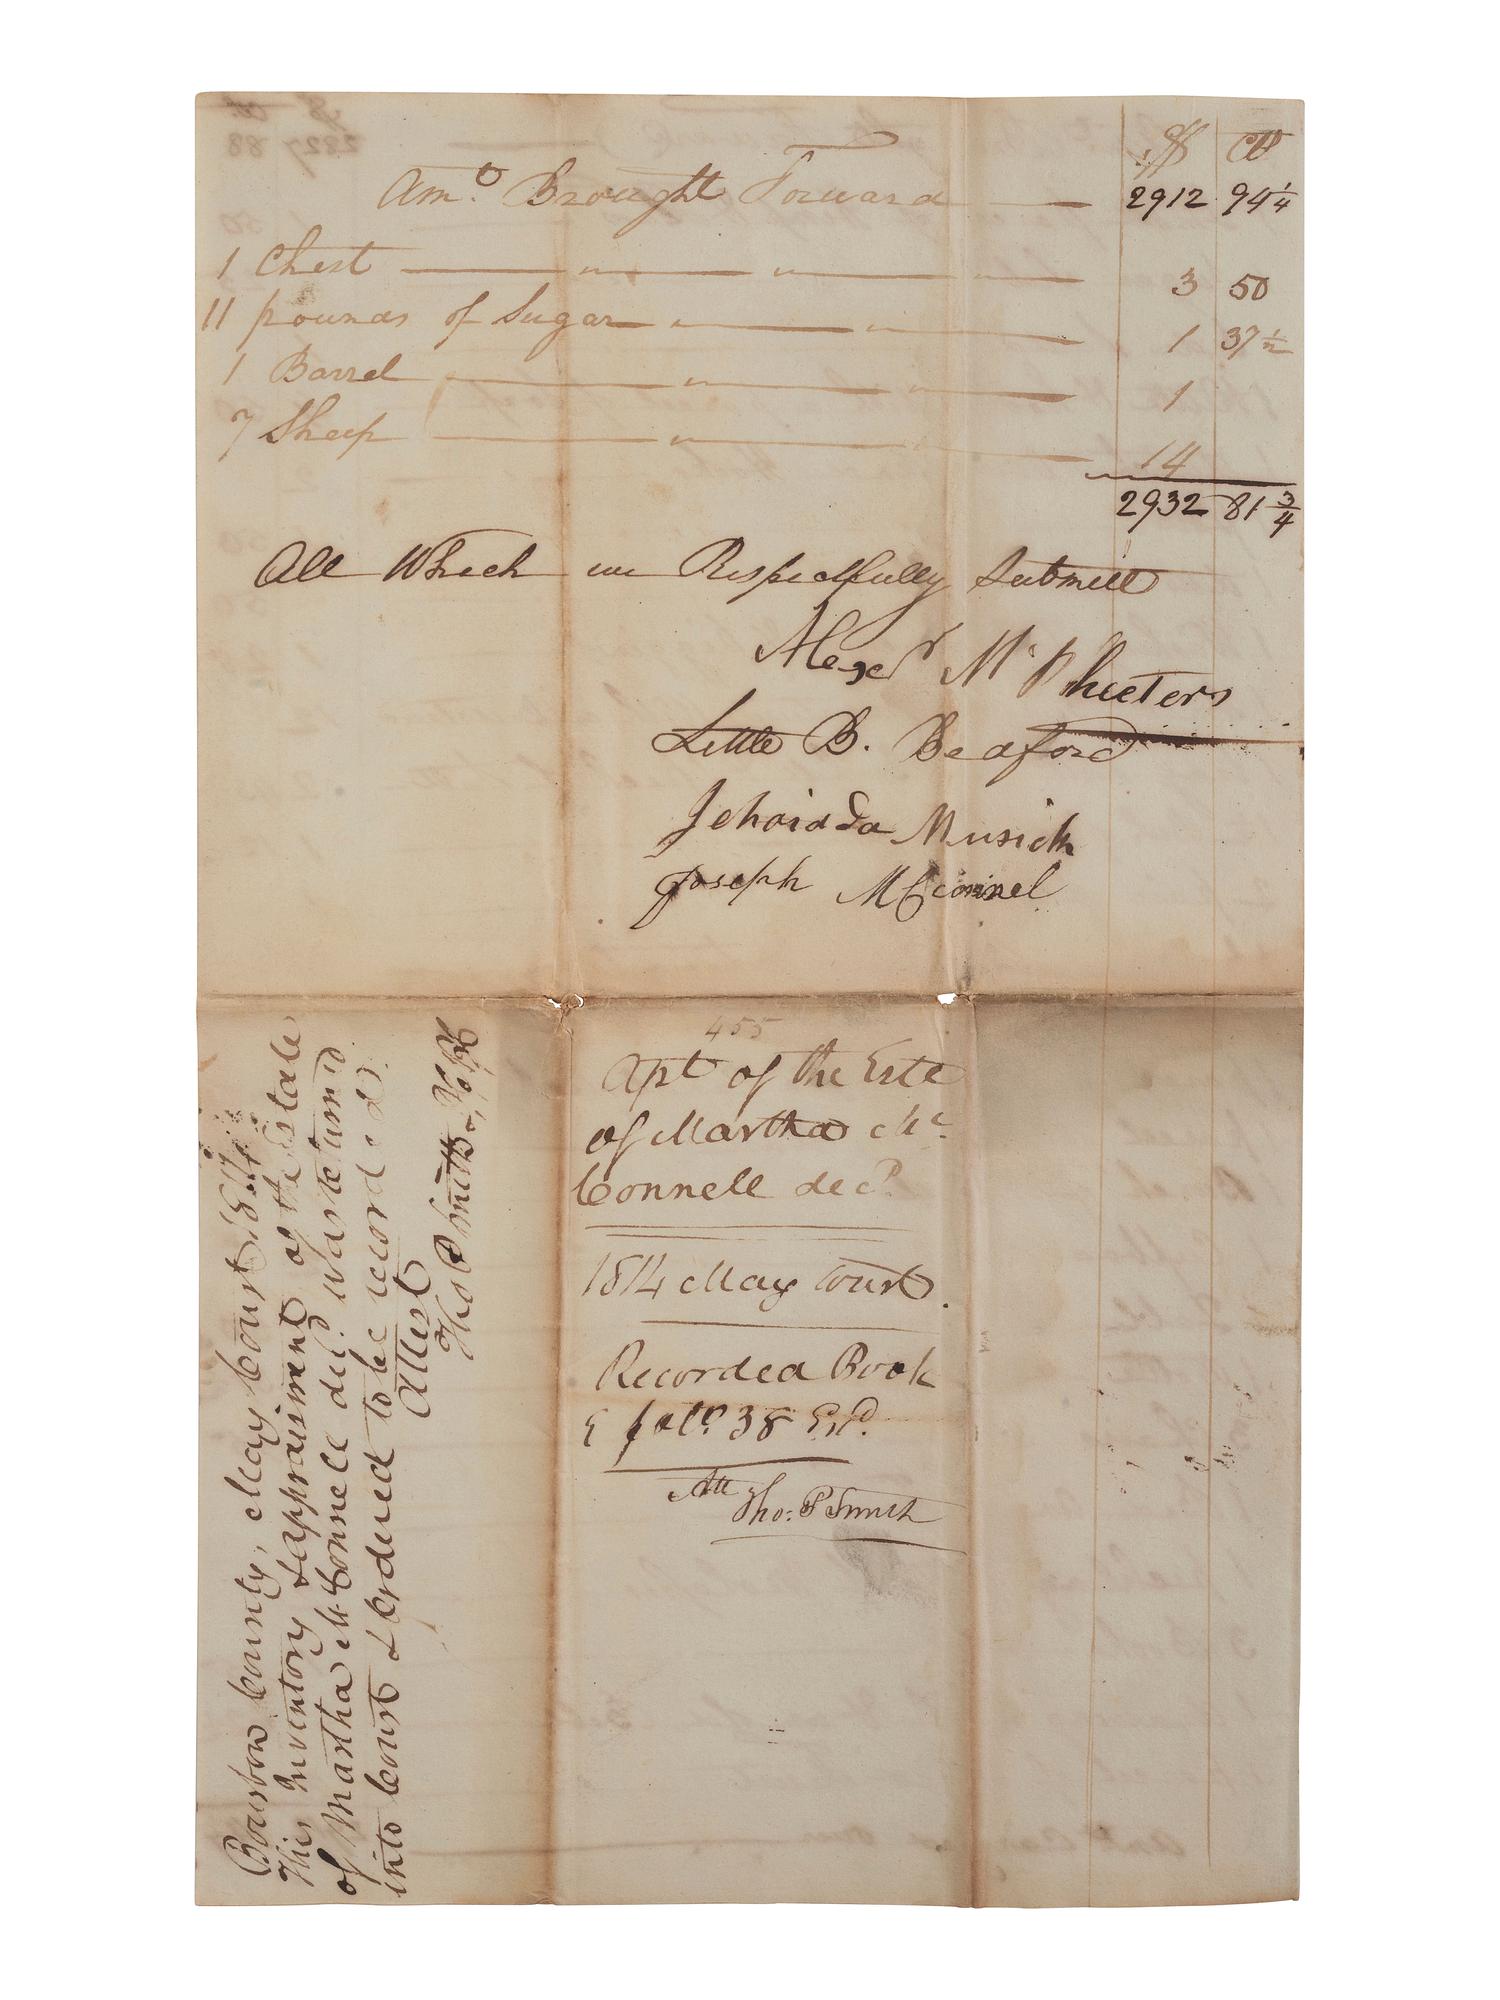 $ Cts
Amt. Brought Forward — 2912 94 1/4
1 Chest — " — " — 3 50
11 pounds of Sugar — " — " — 1 37 1/2
1 Barrel — " — " — 1
7 Sheep — " — 14
2932 81 3/4
All Which we Respectfully Submitt
Alexdr McPheeters
Little B. Bedford
Jehoiada Musick
Joseph McConnel
455
Apt of the Este
of Martha Mc
Connell decd.
1814 May Court.
Recorded Book
E folo. 38 Exd.
Att
Tho: P Smith
Bourbon County, May Court 1814
This Inventory & appraisment of the Estate
of Martha McConnell decd. was returned
into Court & ordered to be recorded
Attest
Tho P Smith